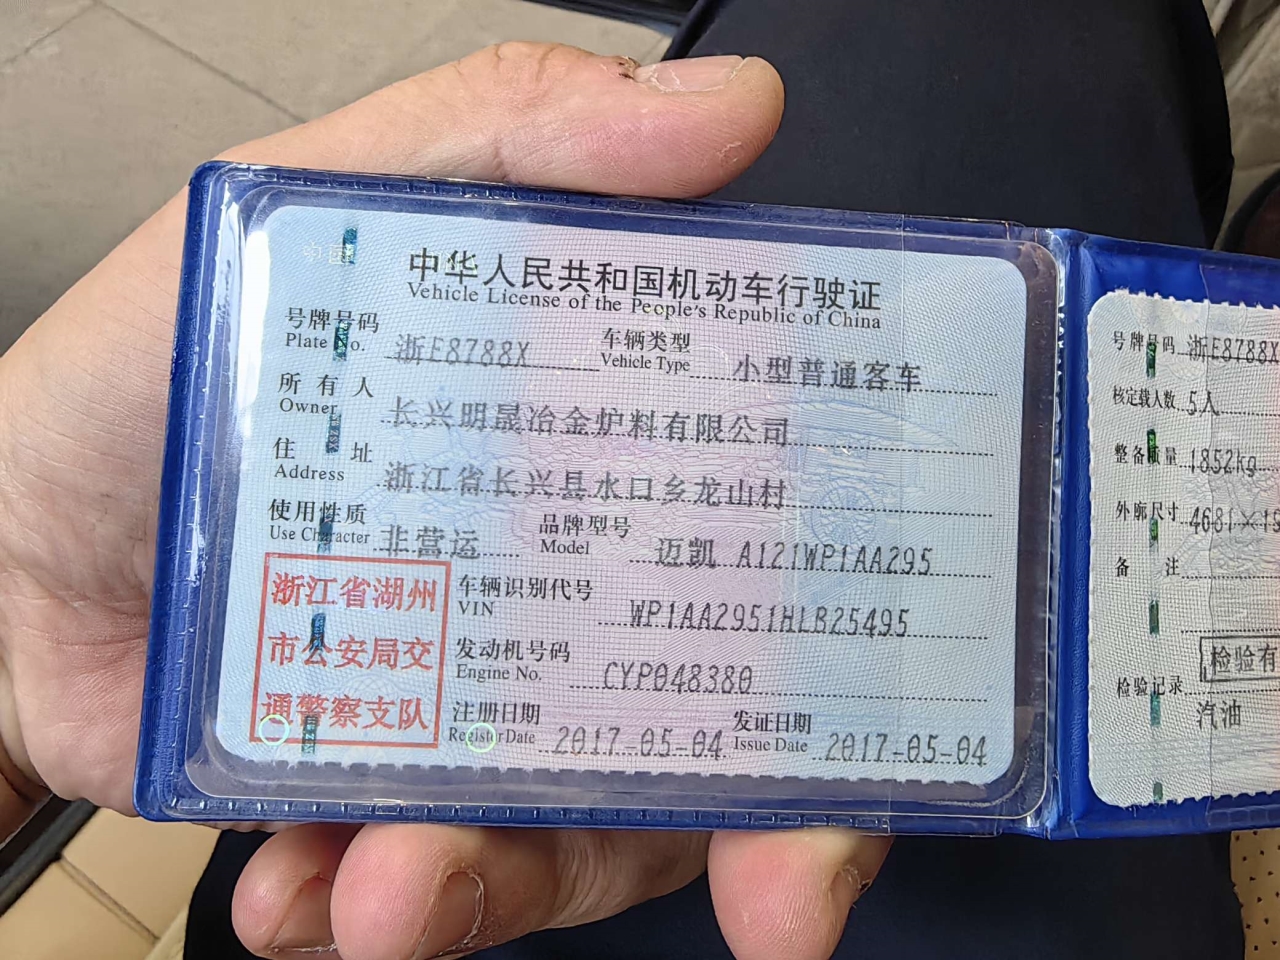 中华人民共和国机动车行驶证
Vehicle License of the People's Republic of China
号牌号码 浙E8788X 车辆类型 小型普通客车
Plate No. Vehicle Type
所有人 长兴明晟冶金炉料有限公司
Owner
住址 浙江省长兴县水口乡龙山村
Address
使用性质 非营运 品牌型号 迈凯 A121WP1AA295
Use Character Model
浙江省湖州
市公安局交
通警察支队
车辆识别代号 WP1AA2951HLB25495
VIN
发动机号码 CYP048380
Engine No.
注册日期 2017-05-04 发证日期 2017-05-04
Register Date Issue Date
号牌号码 浙E8788X
核定载人数 5人
整备质量 1852kg
外廓尺寸 4681×
备注
检验有
检验记录
汽油